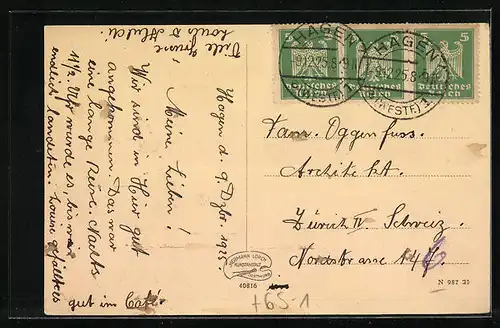 Hagen d. 9 Dzbr. 1925.
Meine Lieben!
Wir sind in Hier gut
angekommen. Das war
eine lange Reise. Nachts
11 1/2 Uhr wurde es, bis wir
endlich landeten. Louise gefällt es
gut im Café!
Viele Grüsse
Louis &
Fam. Oggenfuss.
Architekt.
Zürich IV. Schweiz.
Nordstrasse
HAGEN
9.12.25. 8-9
(WESTF.) 1
HAGEN
9.12.25. 8-9
(WESTF.) 1
5
5
5
Deutsches
Reich
Deutsches
Reich
HERMANN LORCH
KUNSTANSTALT
DORTMUND
40816
N 987 25
+65-1